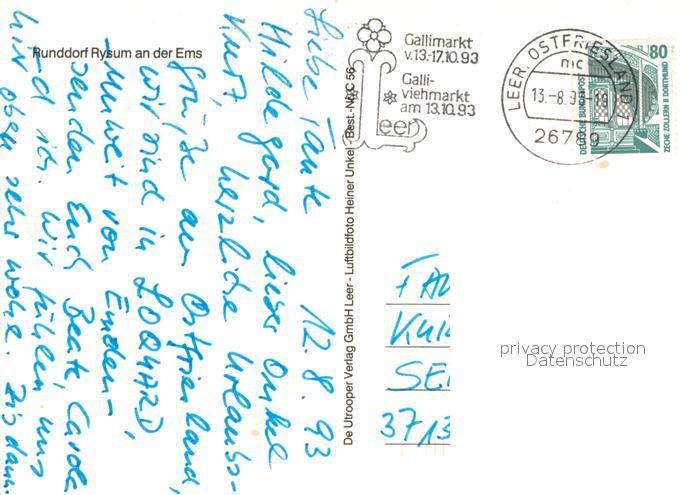 Runddorf Rysum an der Ems
Liebe Tante 12.8.93
Hildegard, lieber Onkel
Kurt, herzliche Urlaubs-
grüße aus Ostfriesland,
wir sind in LOQUARD,
unweit von Emden -
senden Euch Beate, Carola
und ich. Wir fühlen uns
hier oben sehr wohl. Bis dann.
De Utrooper Verlag GmbH Leer - Luftbildfoto Heiner Unkel - Best.-Nr. C 56
Gallimarkt
v.13.-17.10.93
Galli-
viehmarkt
am 13.10.93
Leer
LEER, OSTFRIESLAND
mc
13.-8.9
26789
80
DEUTSCHE BUNDESPOST
ZECHE ZOLLERN II DORTMUND
FAM
SE
3713
privacy protection
Datenschutz